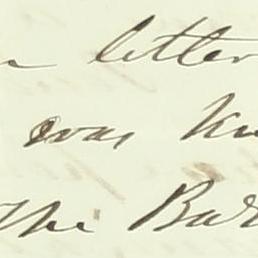 letter
was
The Bar